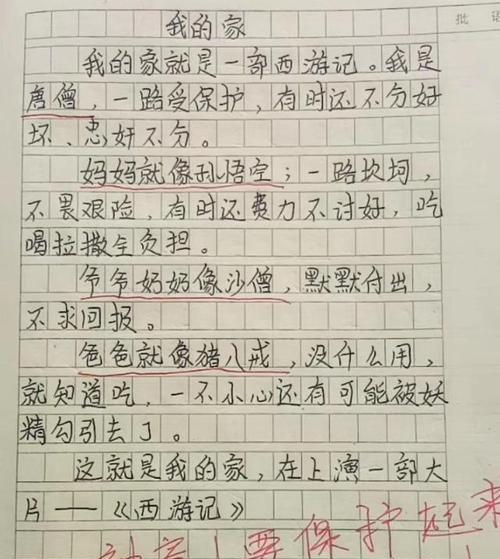 我的家
批语
我的家就是一部西游记。我是
唐僧，一路受保护，有时还不分好
坏、忠奸不分。
妈妈就像孙悟空；一路坎坷，
不畏艰险，有时还费力不讨好，吃
喝拉撒全负担。
爷爷奶奶像沙僧，默默付出，
不求回报。
爸爸就像猪八戒，没什么用，
就知道吃，一不小心还有可能被妖
精勾引去了。
这就是我的家，在上演一部大
片——《西游记》
要保护起来